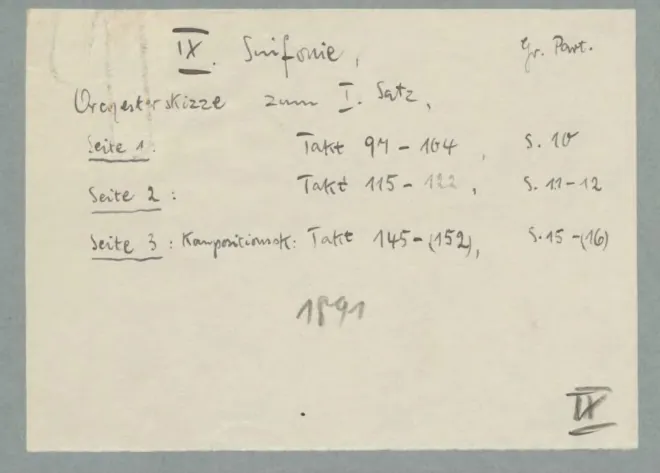 IX. Sinfonie, Gr. Part.
Orchesterskizze zum I. Satz,
Seite 1: Takt 97 - 104, S. 10
Seite 2: Takt 115 - 122, S. 11-12
Seite 3: Kompositionssk: Takt 145-(152), S. 15-(16)
1891
IX